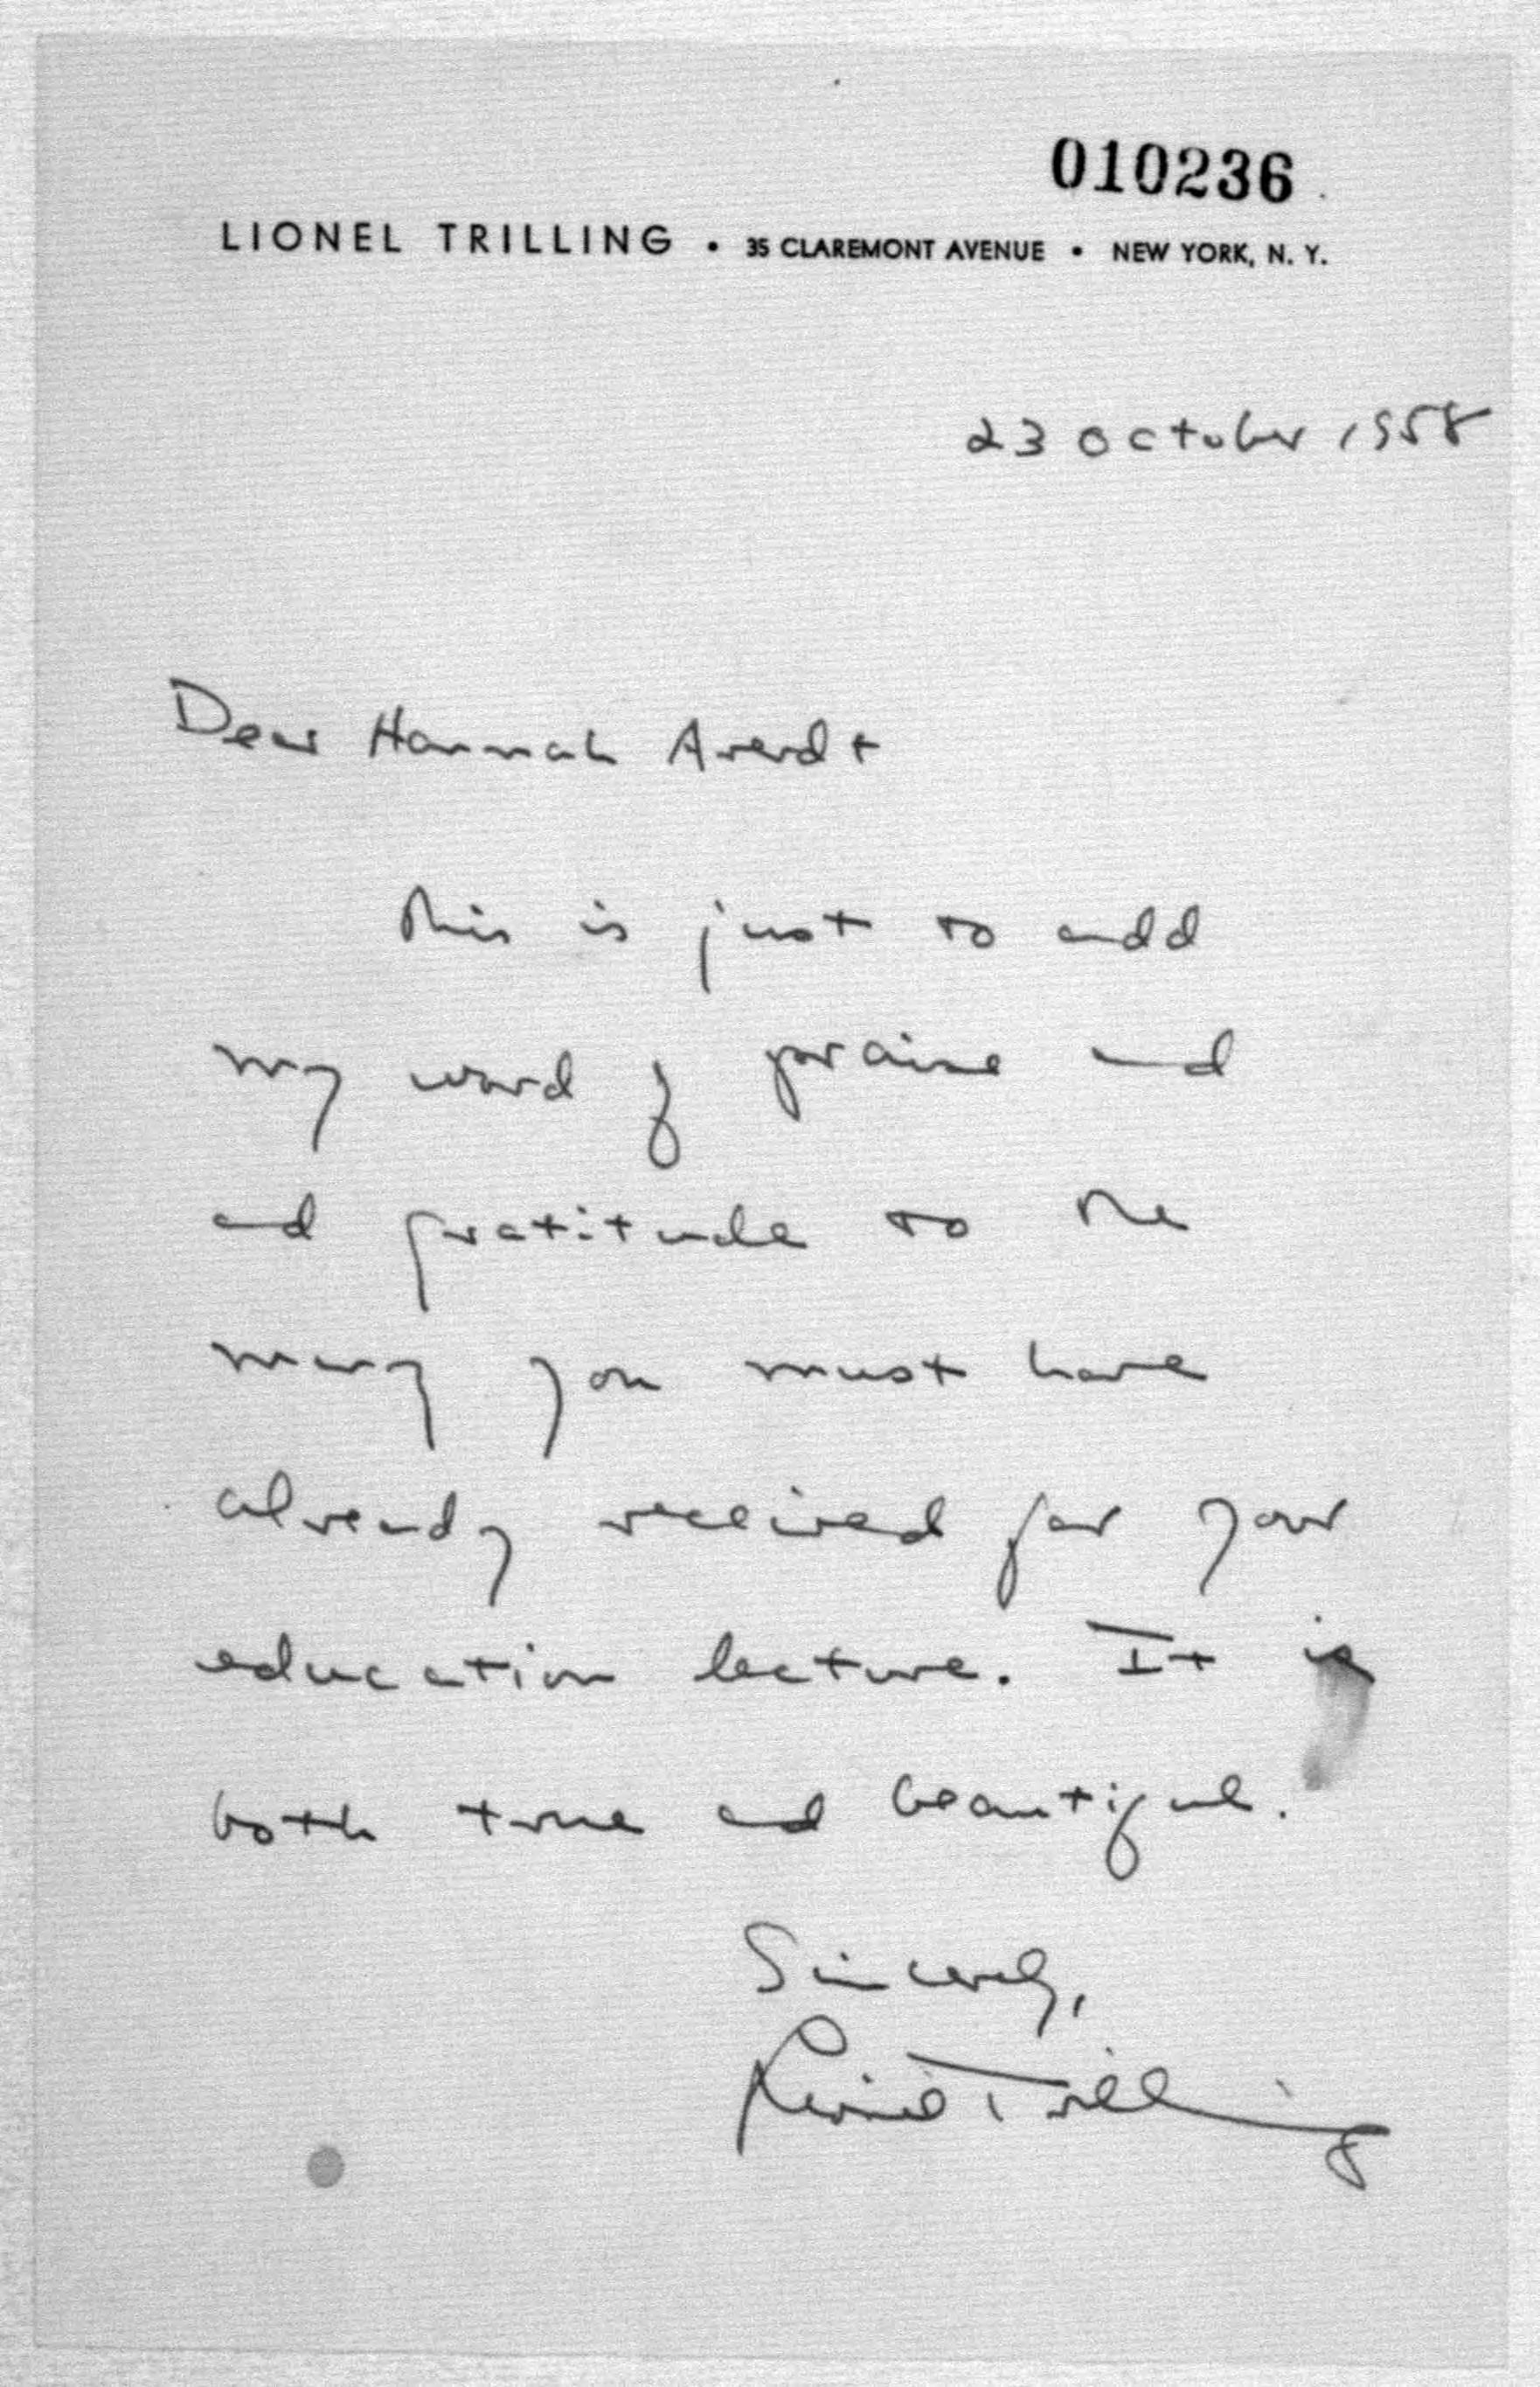 010236
LIONEL TRILLING • 35 CLAREMONT AVENUE • NEW YORK, N. Y.
23 October 1958
Dear Hannah Arendt
This is just to add
my word of praise and
and gratitude to the
many you must have
already received for your
education lecture. It is
both true and beautiful.
Sincerely,
Lionel Trilling